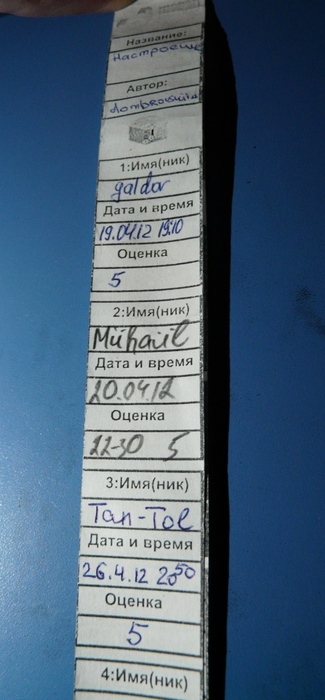 Название:
Настроение
Автор:
dombrovskiu
1:Имя(ник)
galdor
Дата и время
19.04.12 19:10
Оценка
5
2:Имя(ник)
Mühail
Дата и время
20.04.12
Оценка
22-30 5
3:Имя(ник)
Tan-Tol
Дата и время
26.4.12 23 50
Оценка
5
4:Имя(ник)